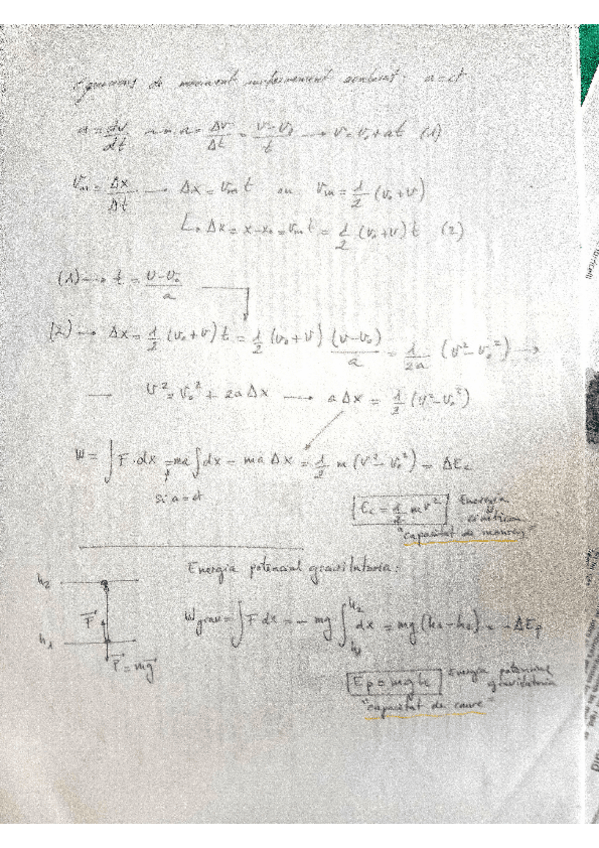 Equacions de moviment uniformement accelerat: a=ct
a = dv/dt → a = Δv/Δt = (v-v₀)/t → v = v₀ + at (1)
vₘ = Δx/Δt → Δx = vₘ t on vₘ = 1/2 (v₀+v)
↳ Δx = x-x₀ = vₘ t = 1/2 (v₀+v) t (2)
(1) → t = (v-v₀)/a
(2) → Δx = 1/2 (v₀+v) t = 1/2 (v₀+v) (v-v₀)/a = 1/2a (v²-v₀²) →
→ v² = v₀² + 2aΔx → aΔx = 1/2 (v²-v₀²)
W = ∫F·dx = ma∫dx = maΔx = 1/2 m (v²-v₀²) = ΔEc
si a=ct
Ec = 1/2 mv² Energia cinètica
"capacitat de moure's"
Energia potencial gravitatòria:
h₂
h₁
F
P = mg
Wgrav = ∫F dx = - mg ∫ₕ₁^h₂ dx = mg (h₁-h₂) = -ΔEp
Ep = mgh Energia potencial gravitatòria
"capacitat de caure"